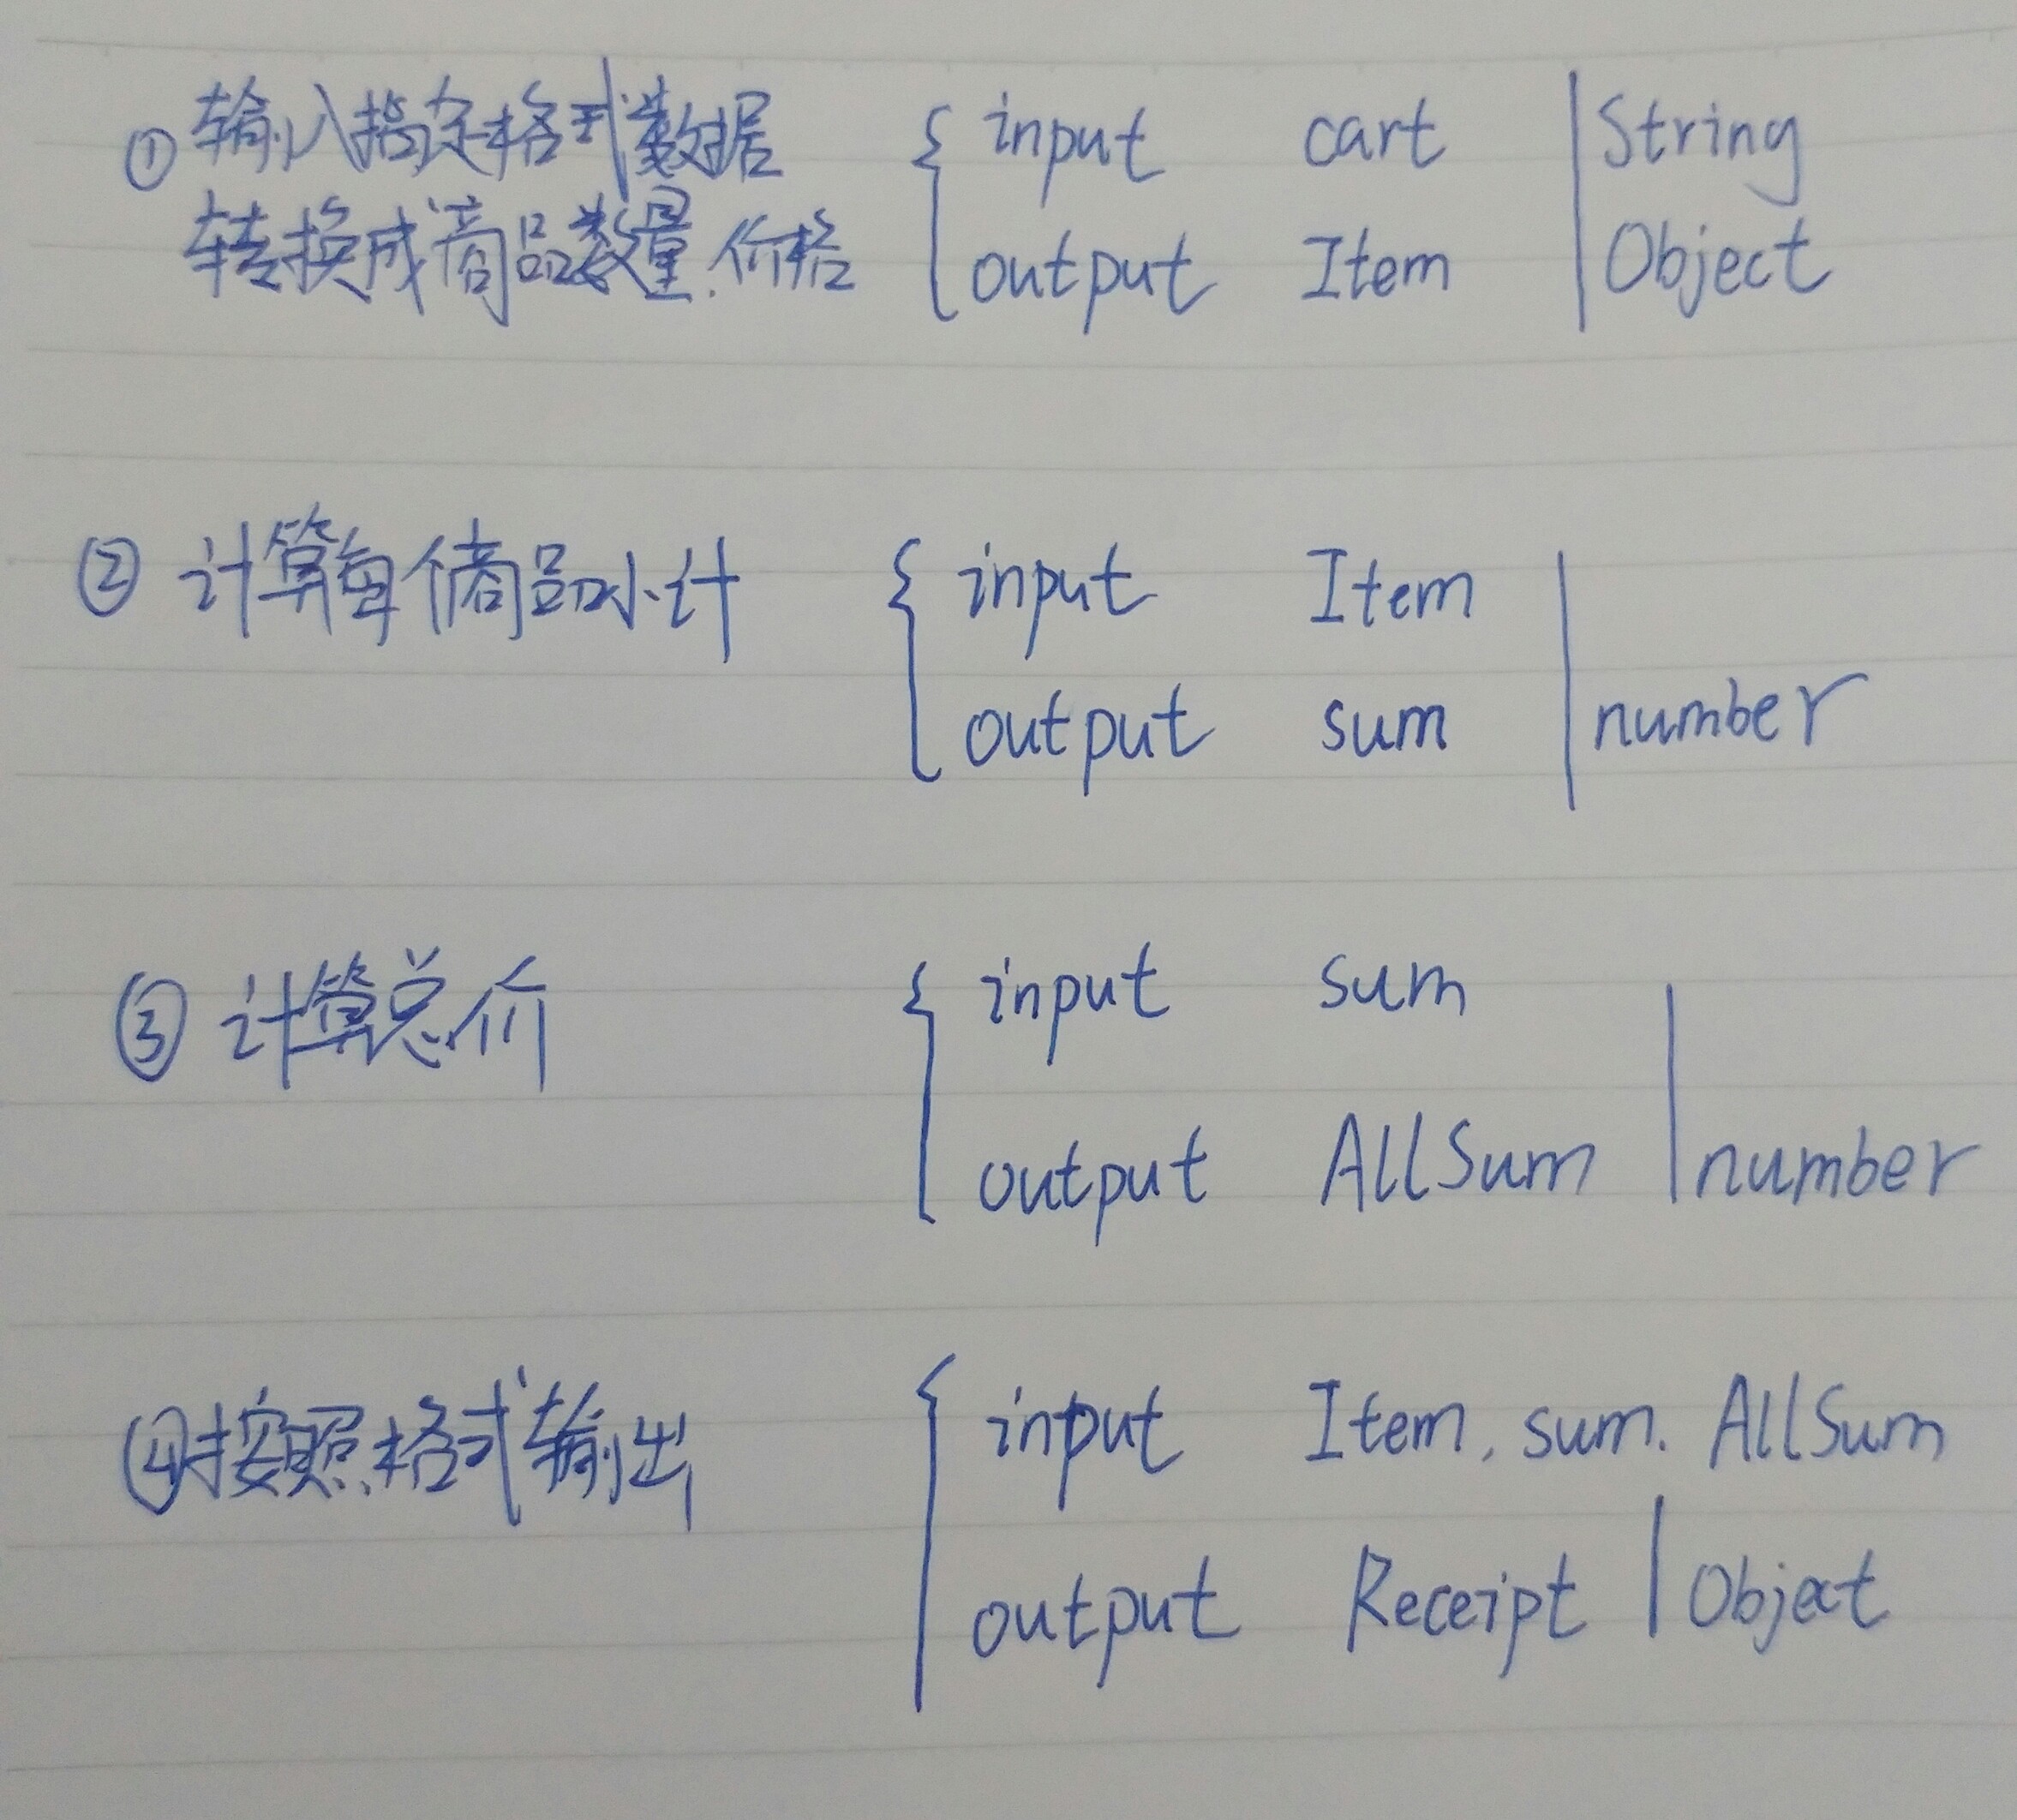 ① 输入指定格式数据 { input cart | String
转换成商品数量.价格 output Item | Object
② 计算每个商品小计 { input Item |
output sum | number
③ 计算总价 { input sum |
output AllSum | number
④ 按照格式输出 { input Item, sum. AllSum
output Receipt | Object